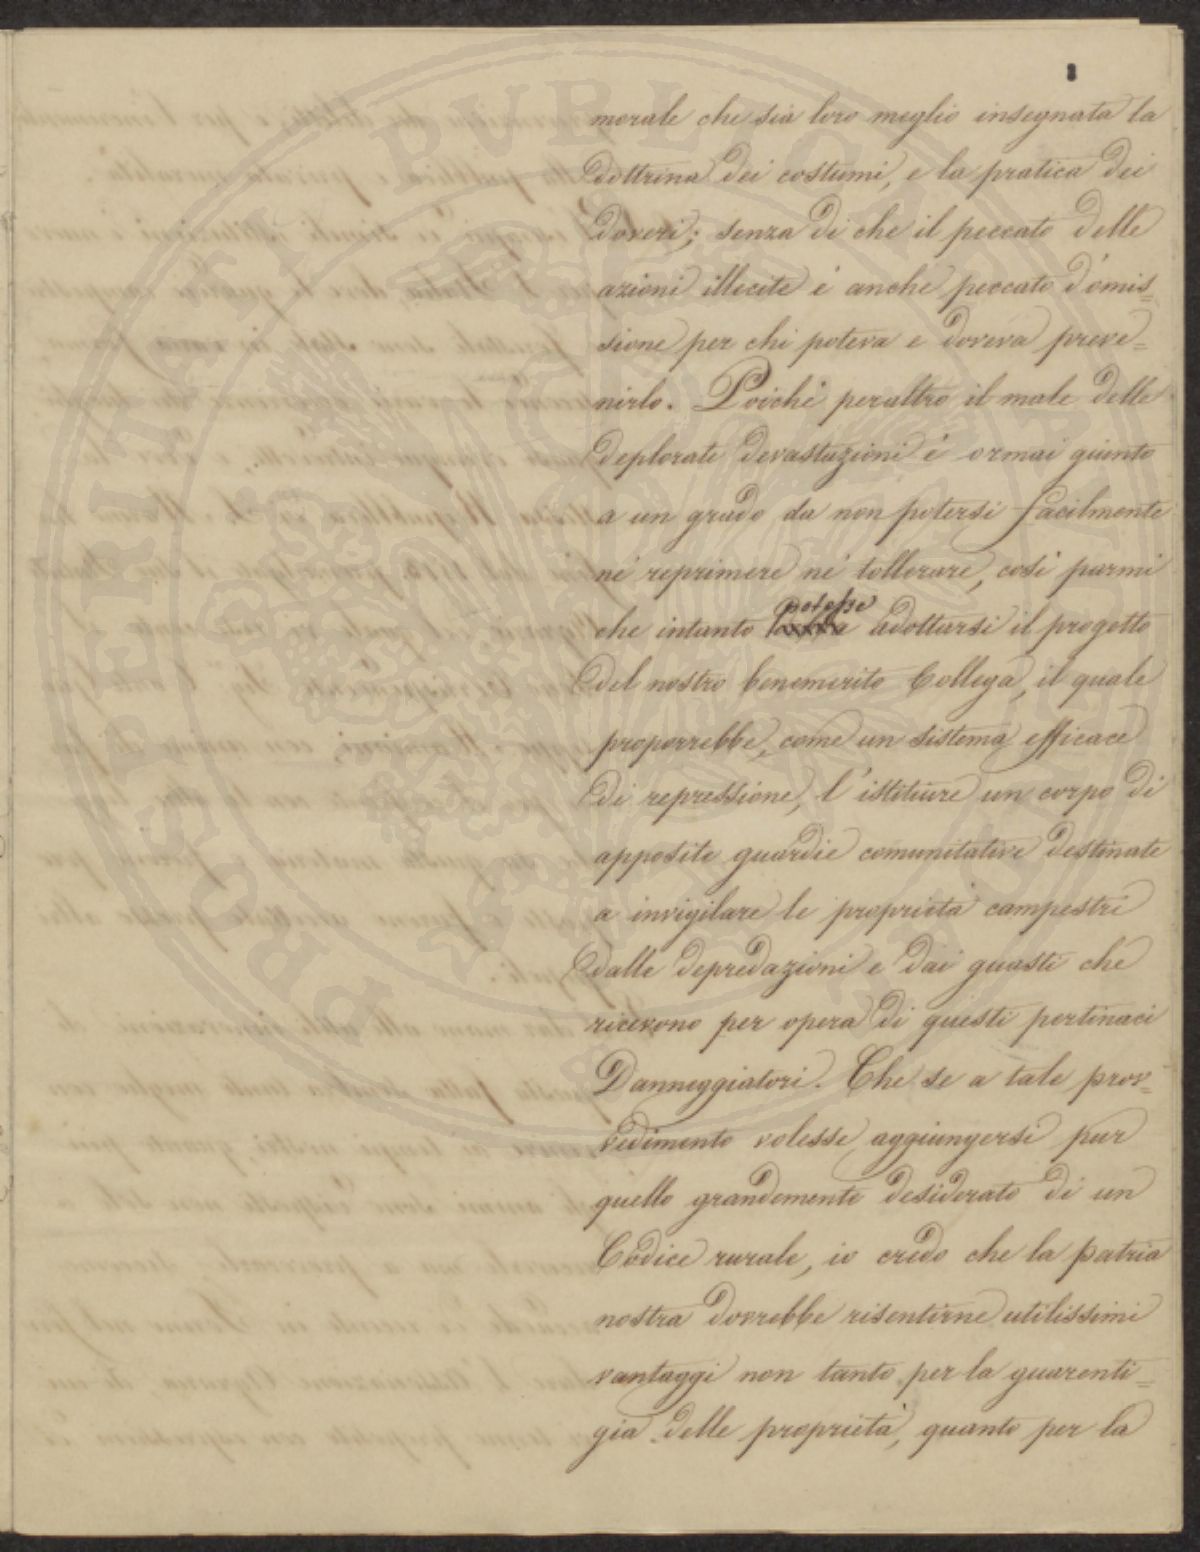 morale che sia loro meglio insegnata la
dottrina dei costumi, e la pratica dei
doveri; senza di che il peccato delle
azioni illecite è anche peccato d'omis=
sione per chi poteva e doveva preve=
nirlo. Poichè peraltro il male delle
deplorate devastazioni è ormai giunto
a un grado da non potersi facilmente
nè reprimere nè tollerare, così parmi
potesse
che intanto adottarsi il progetto
del nostro benemerito Collega, il quale
proporrebbe, come un sistema efficace
di repressione, l'istituire un corpo di
apposite guardie comunitative destinate
a invigilare le proprietà campestri
dalle depredazioni e dai guasti che
ricevono per opera di questi pertinaci
Danneggiatori. Che se a tale prov=
vedimento volesse aggiungersi pur
quello grandemente desiderato di un
Codice rurale, io credo che la patria
nostra dovrebbe risentirne utilissimi
vantaggi non tanto per la guarenti=
gia delle proprietà, quanto per la